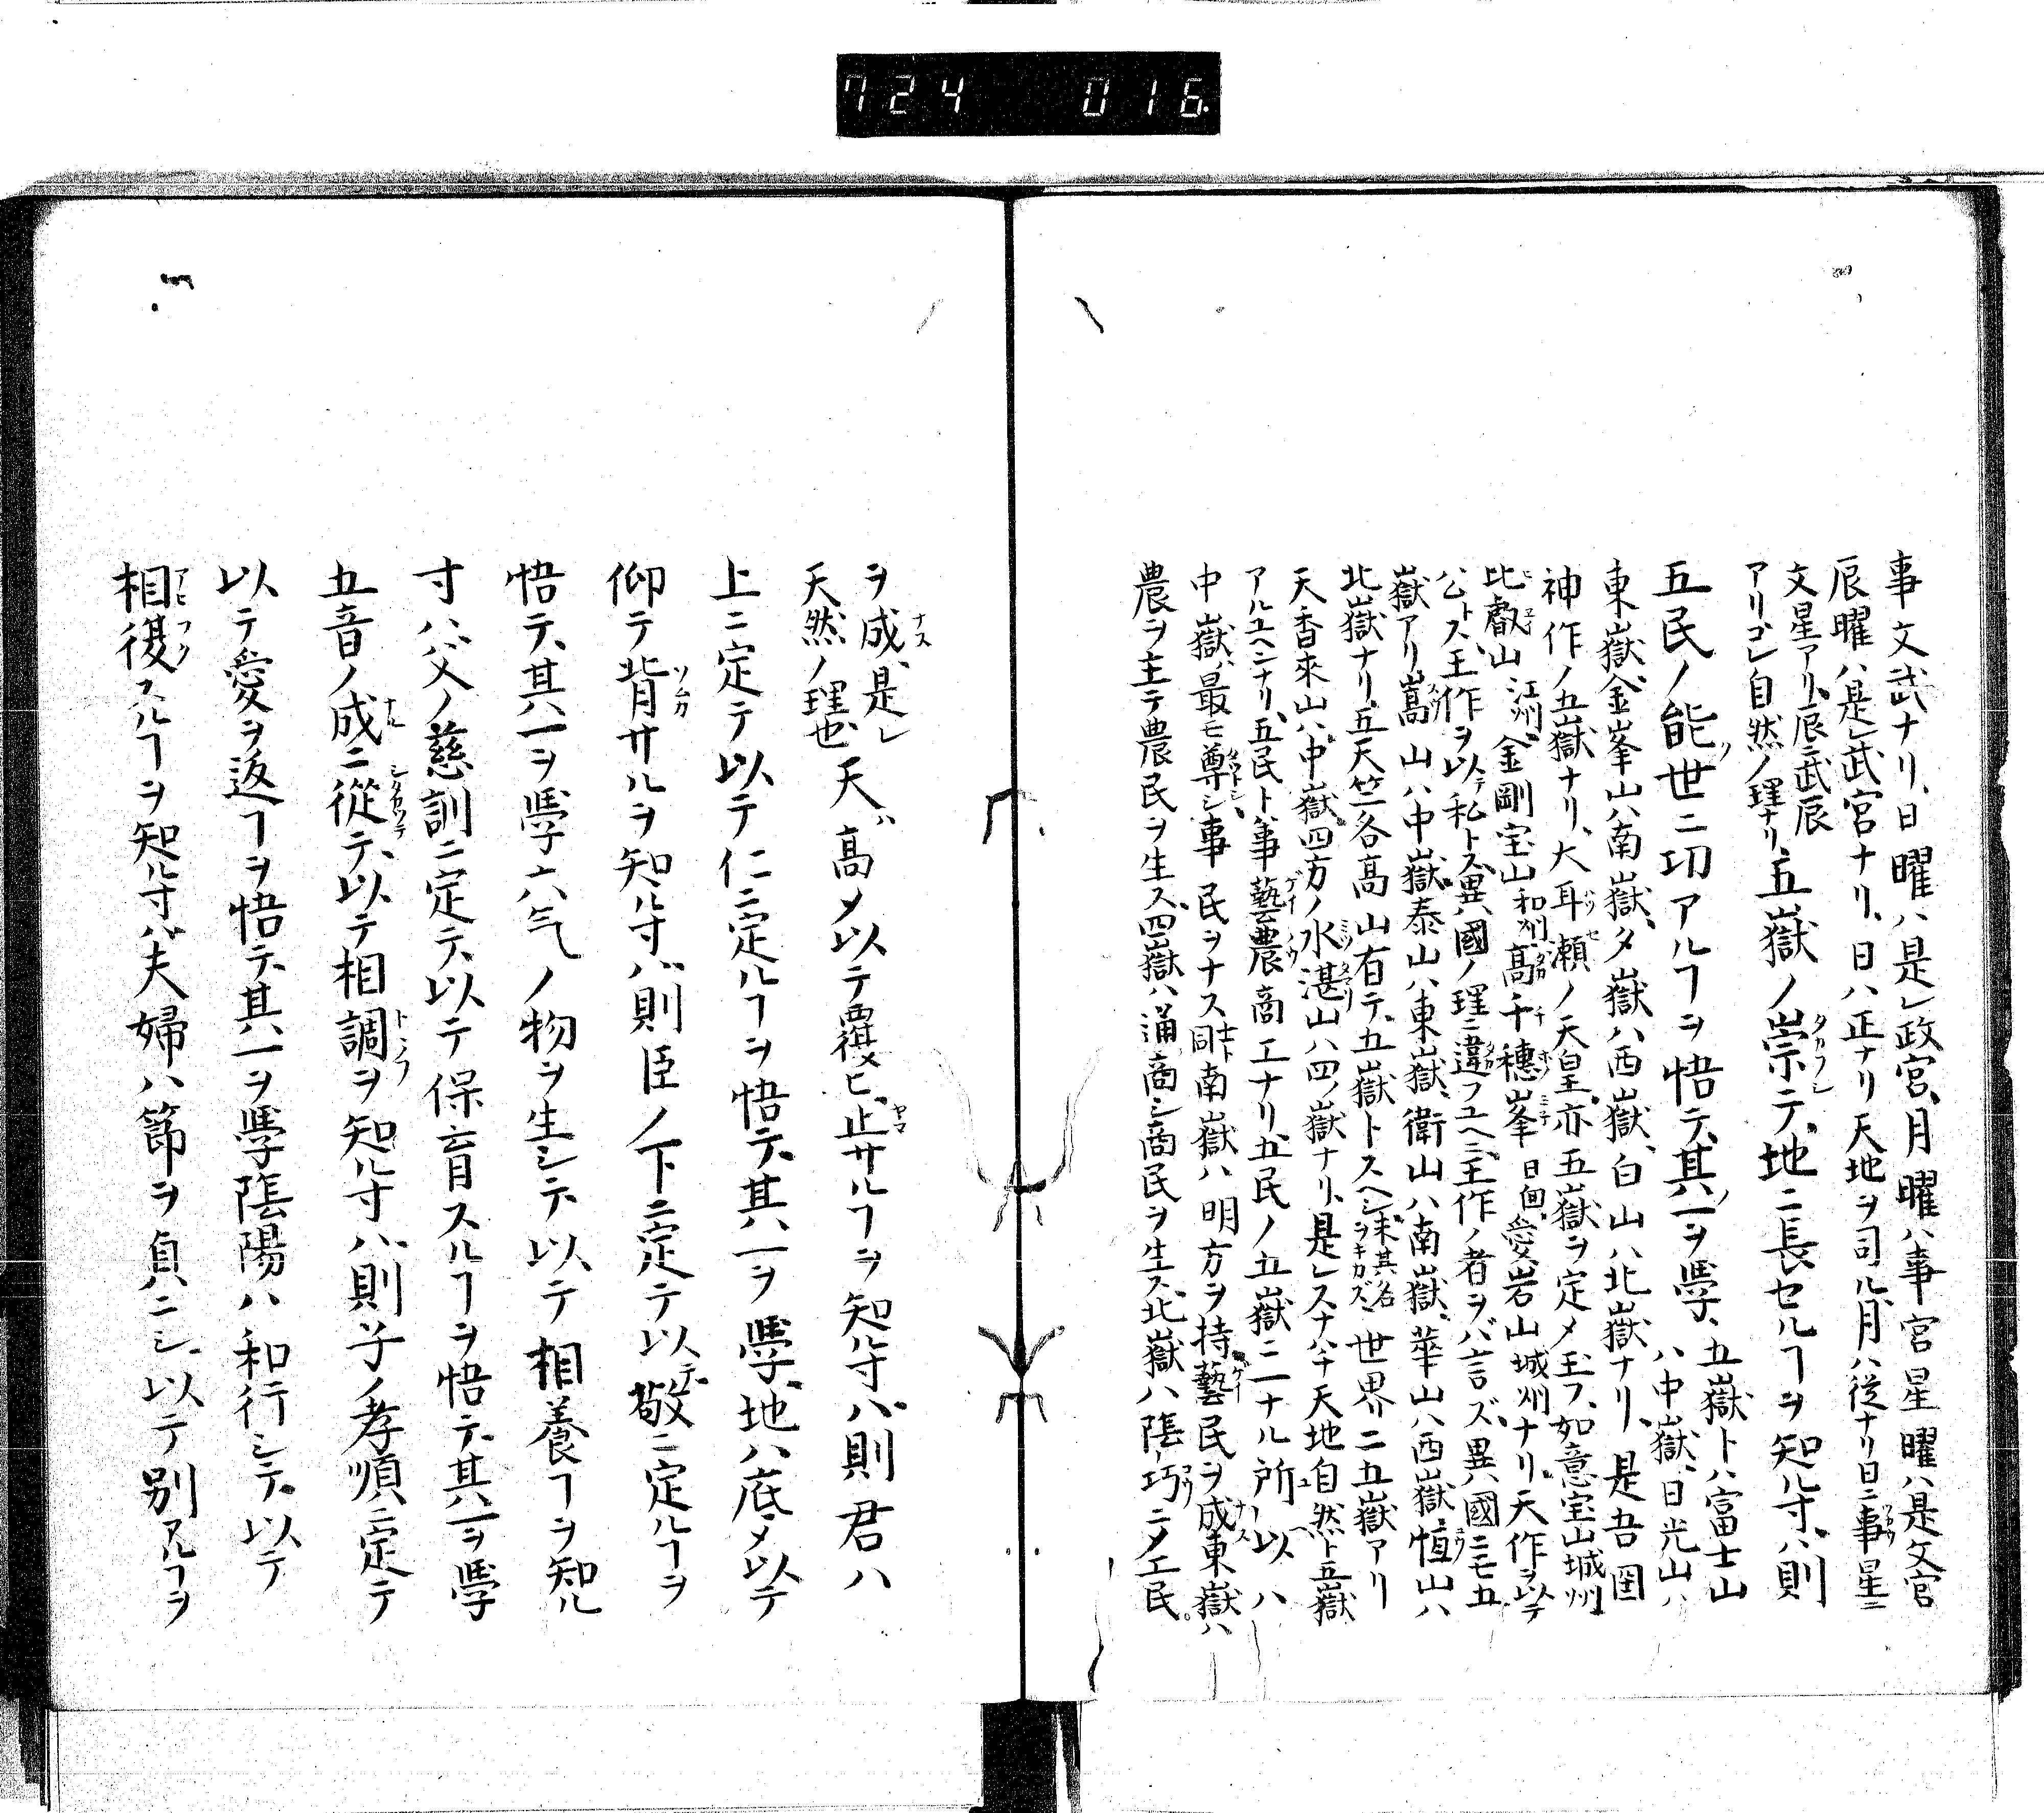 724 016.
事文武ナリ、日曜ハ是レ政宮、月曜ハ事宮星曜ハ是文官
辰曜ハ是レ武宮ナリ、日ハ正ナリ天地ヲ司ル、月ハ従ナリ日ニ事星ニ
文星アリ、辰ニ武辰
アリゴレ自然ノ理ナリ、五嶽ノ崇テ、地ニ長セルヿヲ知ル寸ハ、則
五民ノ能世ニ功アルヿヲ悟テ、其一ヲ學、五嶽トハ富士山
ハ中嶽、日光山ハ
東嶽、金峯山ハ南嶽、夕嶽ハ西嶽、白山ハ北嶽ナリ、是吾国
神作ノ五嶽ナリ、大耳瀬ノ天皇、亦五嶽ヲ定メ玉フ、如意宝山城州
比叡山江州金剛宝山和州高千穂峯日向愛岩山城州ナリ、天作ヲ以テ
公トス、王作ヲ以テ私トス、異國ノ理ニ違フユヘニ、王作ノ者ヲバ言ズ、異國ニモ五
嶽アリ、嵩山ハ中嶽泰山ハ東嶽、衛山ハ南嶽、華山ハ西嶽、恒山ハ
北嶽ナリ、五天竺各高山有テ、五嶽トスヘシ、未其名ヲキカズ、世界ニ五嶽アリ
天香来山ハ中嶽四方ノ水湛山ハ四ノ嶽ナリ、是レスナハチ天地自然ト五嶽
アルユヘンナリ、五民トハ事藝農商工ナリ、五民ノ五嶽ニナル所以ハ
中嶽ハ最モ尊シ、事民ヲナス南嶽ハ明方ヲ持藝民ヲ成東嶽ハ
農ヲ主テ農民ヲ生ス、西嶽ハ通商シ商民ヲ生ス、北嶽ハ陰巧ニメ工民
ヲ成、是レ
天然ノ理也、天ハ高メ以テ覆ヒ、止サルヿヲ知ル寸ハ、則君ハ
上ニ定テ以テ仁ニ定ルヿヲ悟テ、其一ヲ學、地ハ底メ以テ
仰テ背サルヲ知ル寸ハ、則臣ノ下ニ定テ以テ敬ニ定ルヿヲ
悟テ、其一ヲ學六气ノ物ヲ生シテ以テ相養フヿヲ知ル
寸ハ、父ノ慈訓ニ定テ、以テ保育スルヿヲ悟テ、其一ヲ學
五音ノ成ニ從テ、以テ相調ヲ知ル寸ハ、則子ノ孝順ニ定テ
以テ愛ヲ返フヿヲ悟テ、其一ヲ學陰陽ハ和行シテ、以テ
相復スルヿヲ知ル寸ハ夫婦ハ節ヲ貞ニシ、以テ別アルヿヲ